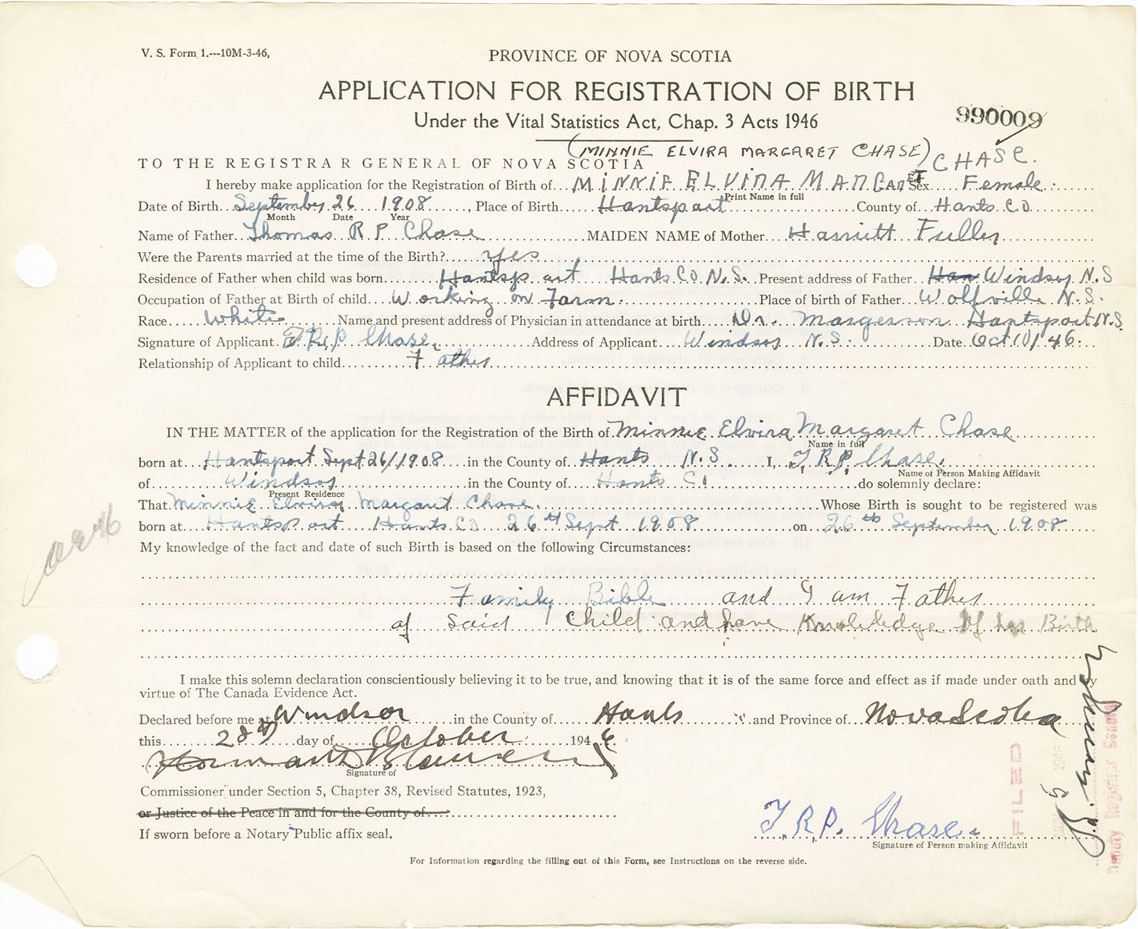 V. S. Form 1.---10M-3-46,
PROVINCE OF NOVA SCOTIA
APPLICATION FOR REGISTRATION OF BIRTH
990009
Under the Vital Statistics Act, Chap. 3 Acts 1946
(MINNIE ELVIRA MARGARET CHASE) CHASE.
TO THE REGISTRAR GENERAL OF NOVA SCOTIA
I hereby make application for the Registration of Birth of MINNIE ELVIRA MARGARET Sex Female
Print Name in full
Date of Birth September 26 1908, Place of Birth Hantsport County of Hants Co
Month Date Year
Name of Father Thomas R P Chase MAIDEN NAME of Mother Harriett Fuller
Were the Parents married at the time of the Birth? yes
Residence of Father when child was born Hantsport Hants Co N.S. Present address of Father Han Windsor N.S
Occupation of Father at Birth of child Working on Farm. Place of birth of Father Wolfville N.S.
Race White Name and present address of Physician in attendance at birth. Dr. Margerson Hantsport N.S
Signature of Applicant T.R.P. Chase. Address of Applicant Windsor N.S. Date Oct 10/46.
Relationship of Applicant to child Father
AFFIDAVIT
IN THE MATTER of the application for the Registration of the Birth of Minnie Elvira Margaret Chase
Name in full
born at Hantsport Sept 26/1908 in the County of Hants N.S. I, T.R.P. Chase.
Name of Person Making Affidavit
of Windsor in the County of Hants Co do solemnly declare:
Present Residence
That Minnie Elvira Margaret Chase Whose Birth is sought to be registered was
born at Hantsport Hants Co 26th Sept 1908 on 26th September 1908
My knowledge of the fact and date of such Birth is based on the following Circumstances:
Family Bible and I am Father
of said child and have Knowledge of her Birth
I make this solemn declaration conscientiously believing it to be true, and knowing that it is of the same force and effect as if made under oath and by
virtue of The Canada Evidence Act.
Declared before me at Windsor in the County of Hants and Province of Nova Scotia
this 23rd day of October 1946
Signature of
Commissioner under Section 5, Chapter 38, Revised Statutes, 1923,
or Justice of the Peace in and for the County of
If sworn before a Notary Public affix seal.
T.R.P. Chase.
Signature of Person making Affidavit
For Information regarding the filling out of this Form, see Instructions on the reverse side.
FILED
Deputy Registrar General